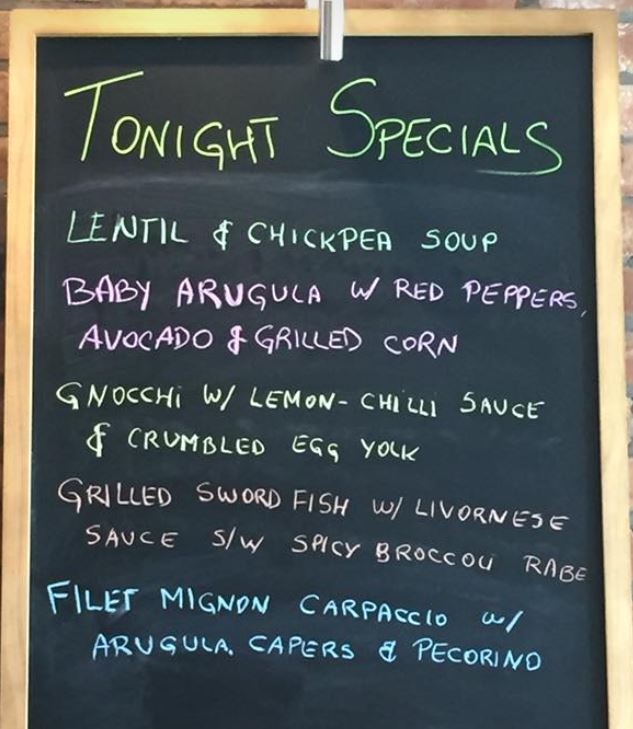 TONIGHT SPECIALS
LENTIL & CHICKPEA SOUP
BABY ARUGULA W/ RED PEPPERS,
AVOCADO & GRILLED CORN
GNOCCHi W/ LEMON-CHiLLi SAUCE
& CRUMBLED EGG YOLK
GRILLED SWORD FISH W/ LIVORNESE
SAUCE S/W SPICY BROCCOLI RABE
FILET MIGNON CARPACCIO w/
ARUGULA, CAPERS & PECORINO